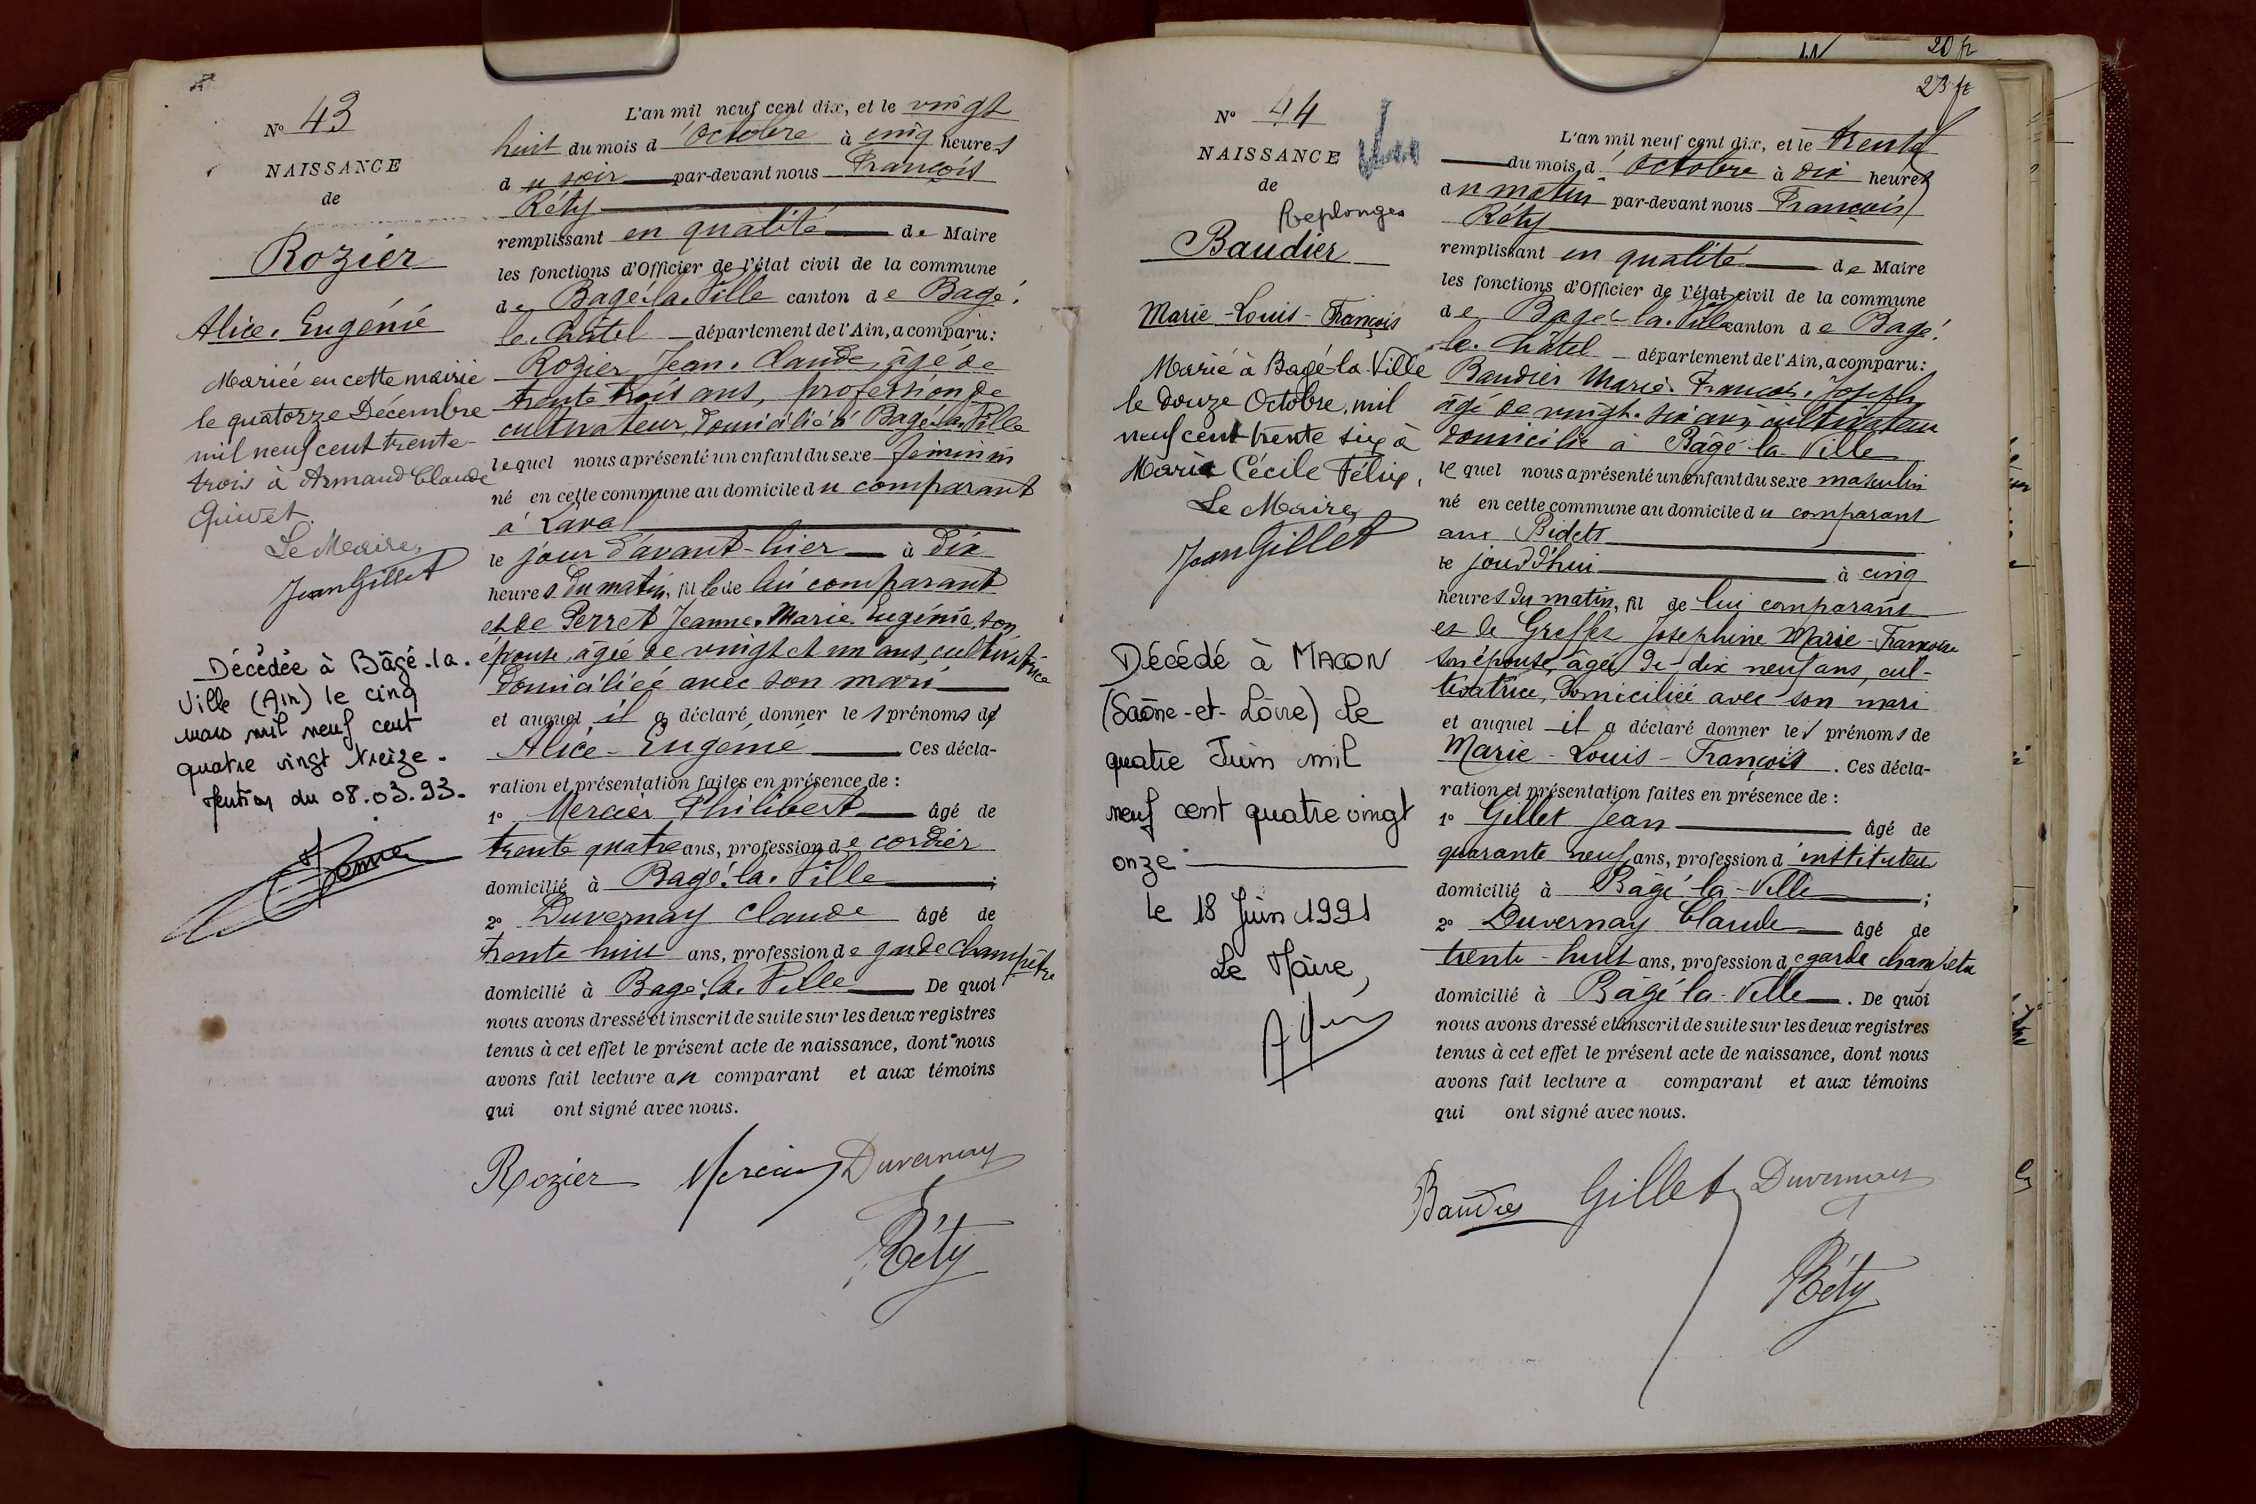 Nº 43
NAISSANCE
de
Rozier
Alice. Eugénie
Mariée en cette mairie
le quatorze Décembre
mil neuf cent trente-
trois à Armand Claude
Guivet.
Le Maire,
Jean Gillet
Décédée à Bâgé-la-
Ville (Ain) le cinq
mars mil neuf cent
quatre vingt treize.
Mention du 08.03.93.
L'an mil neuf cent dix, et le vingt
huit du mois d'Octobre à cinq heures
du soir par-devant nous François
Réty
remplissant en qualité de Maire
les fonctions d'Officier de l'état civil de la commune
de Bagé-la-Ville canton de Bagé-
le-Châtel département de l'Ain, a comparu:
Rozier Jean-Claude, âgé de
trente trois ans, profession de
cultivateur, domicilié à Bagé-la-Ville
lequel nous a présenté un enfant du sexe féminin
né en cette commune au domicile du comparant
à Laval
le jour d'avant-hier à dix
heures du matin, fille de lui comparant
et de Perret Jeanne-Marie Eugénie, son
épouse, âgée de vingt et un ans, cultivatrice
domiciliée avec son mari
et auquel il a déclaré donner les prénoms de
Alice-Eugénie Ces décla-
ration et présentation faites en présence de :
1º Mercier Philibert âgé de
trente quatre ans, profession de cordier
domicilié à Bagé-la-Ville ;
2º Duvernay Claude âgé de
trente huit ans, profession de garde champêtre
domicilié à Bagé-la-Ville De quoi
nous avons dressé et inscrit de suite sur les deux registres
tenus à cet effet le présent acte de naissance, dont nous
avons fait lecture au comparant et aux témoins
qui ont signé avec nous.
Rozier Mercier Duvernay
Réty
20 fr
23 fr
Nº 44
NAISSANCE
de
Replonges
Baudier
Marie-Louis-François
Marié à Bagé-la-Ville
le douze Octobre mil
neuf cent trente six à
Marie Cécile Félix,
Le Maire,
Jean Gillet
Décédé à MACON
(Saône-et-Loire) le
quatre Juin mil
neuf cent quatre vingt
onze.
le 18 Juin 1991
Le Maire,
L'an mil neuf cent dix, et le trente
du mois d'Octobre à dix heures
du matin par-devant nous François
Réty
remplissant en qualité de Maire
les fonctions d'Officier de l'état civil de la commune
de Bagé-la-Ville canton de Bagé-
le-Châtel département de l'Ain, a comparu:
Baudier Marie-François-Joseph
âgé de vingt-six ans, cultivateur
domicilié à Bâgé-la-Ville
lequel nous a présenté un enfant du sexe masculin
né en cette commune au domicile du comparant
aux Bidets
le jour d'hui à cinq
heures du matin, fil de lui comparant
et de Greffet Josephine Marie-Françoise
son épouse, âgée de dix neuf ans, cul-
tivatrice, domiciliée avec son mari
et auquel il a déclaré donner les prénoms de
Marie-Louis-François. Ces décla-
ration et présentation faites en présence de :
1º Gillet Jean âgé de
quarante neuf ans, profession d'instituteur
domicilié à Bâgé-la-Ville ;
2º Duvernay Claude âgé de
trente-huit ans, profession de garde champêtre
domicilié à Bâgé-la-Ville. De quoi
nous avons dressé et inscrit de suite sur les deux registres
tenus à cet effet le présent acte de naissance, dont nous
avons fait lecture a comparant et aux témoins
qui ont signé avec nous.
Baudier Gillet Duvernay
Réty